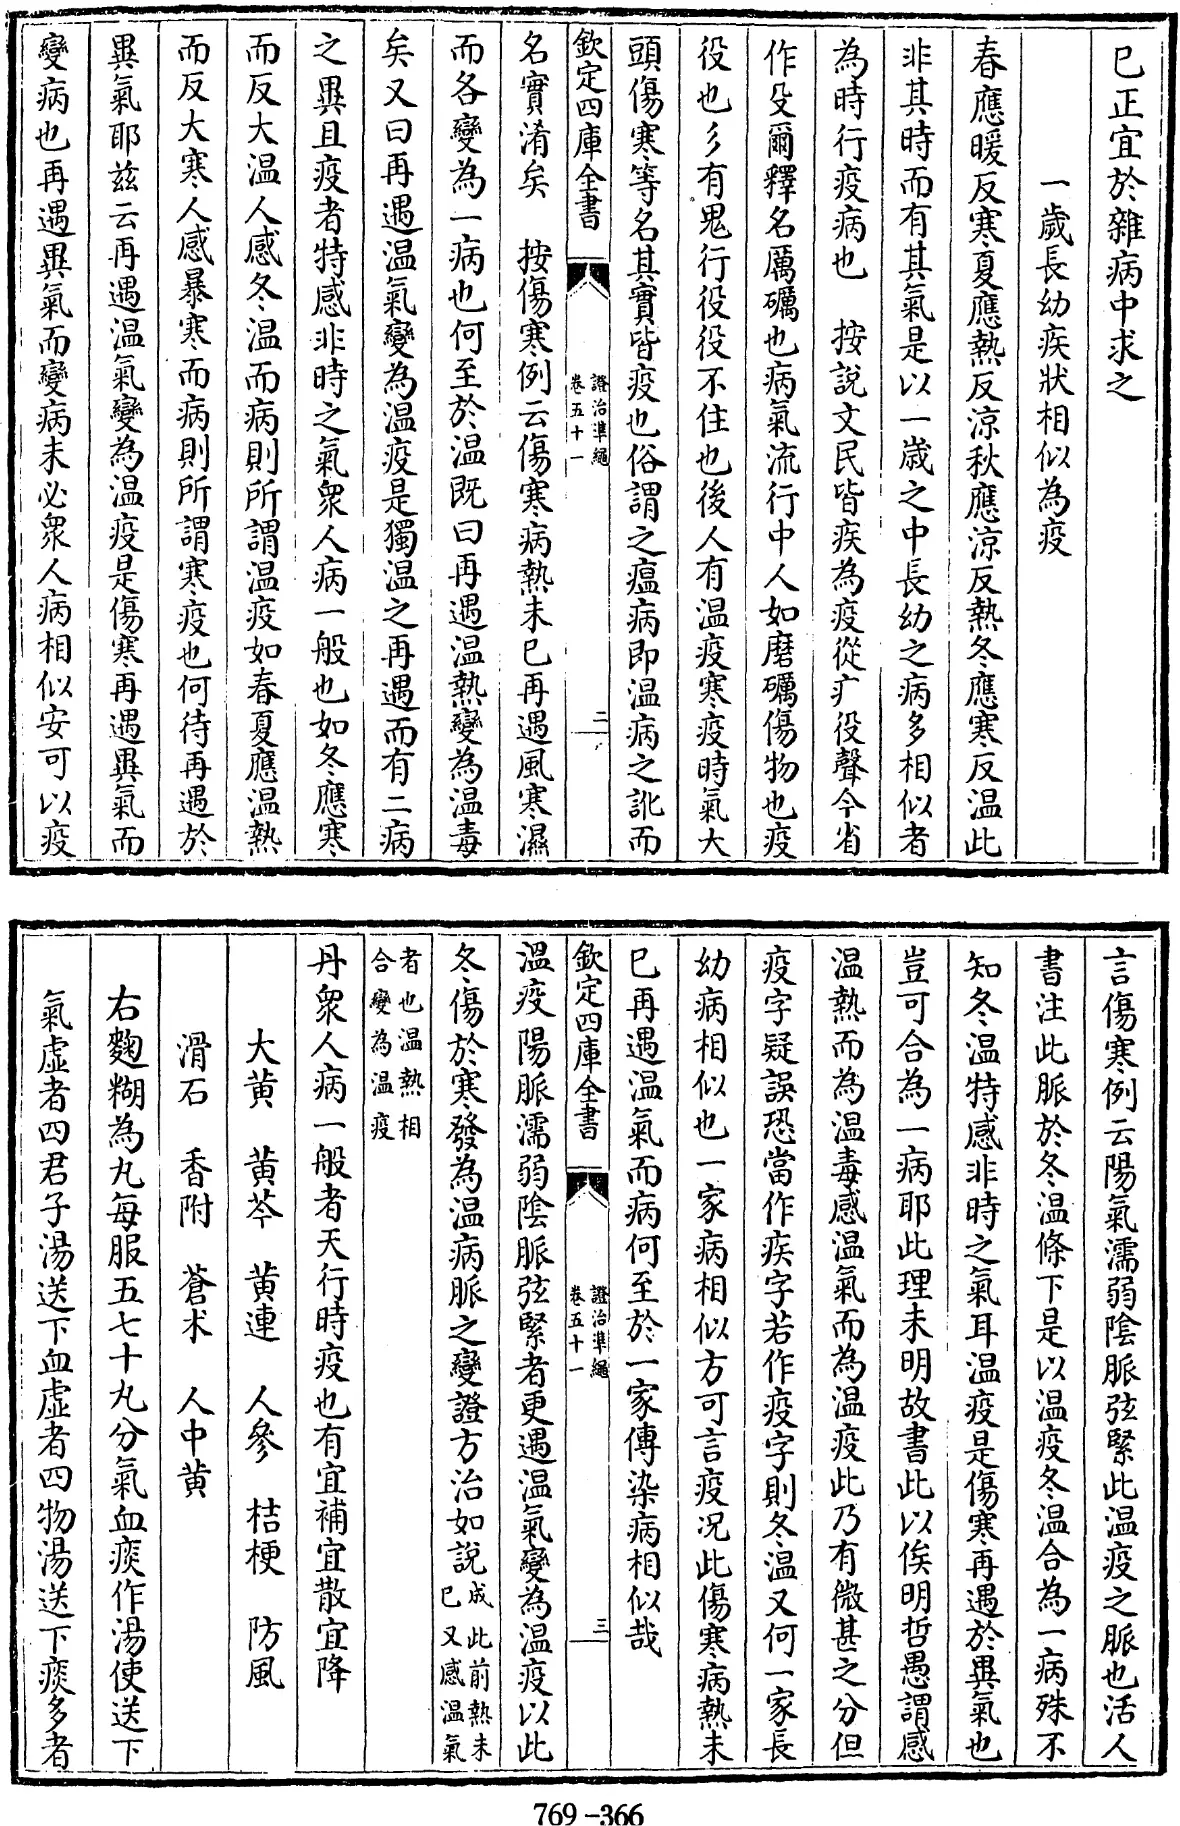 已正宜於雜病中求之
一歲長幼疾狀相似為疫
春應暖反寒夏應熱反涼秋應涼反熱冬應寒反温此
非其時而有其氣是以一歲之中長幼之病多相似者
為時行疫病也　按說文民皆疾為疫從疒役聲今省
作殳爾釋名厲礪也病氣流行中人如磨礪傷物也疫
役也彡有鬼行役役不住也後人有温疫寒疫時氣大
頭傷寒等名其實皆疫也俗謂之瘟病即温病之訛而
欽定四庫全書　證治準繩　卷五十一　二
名實淆矣　按傷寒例云傷寒病熱未已再遇風寒濕
而各變為一病也何至於温既曰再遇温熱變為温毒
矣又曰再遇温氣變為温疫是獨温之再遇而有二病
之異且疫者特感非時之氣衆人病一般也如冬應寒
而反大温人感冬温而病則所謂温疫如春夏應温熱
而反大寒人感暴寒而病則所謂寒疫也何待再遇於
異氣耶兹云再遇温氣變為温疫是傷寒再遇異氣而
變病也再遇異氣而變病未必衆人病相似安可以疫
言傷寒例云陽氣濡弱陰脈弦緊此温疫之脈也活人
書注此脈於冬温條下是以温疫冬温合為一病殊不
知冬温特感非時之氣耳温疫是傷寒再遇於異氣也
豈可合為一病耶此理未明故書此以俟明哲愚謂感
温熱而為温毒感温氣而為温疫此乃有微甚之分但
疫字疑誤恐當作疾字若作疫字則冬温又何一家長
幼病相似也一家病相似方可言疫况此傷寒病熱未
已再遇温氣而病何至於一家傳染病相似哉
欽定四庫全書　證治準繩　卷五十一　三
温疫陽脈濡弱陰脈弦緊者更遇温氣變為温疫以此
冬傷於寒發為温病脈之變證方治如說成此前熱未已又感温氣
者也温熱相合變為温疫
丹衆人病一般者天行時疫也有宜補宜散宜降
大黄　黄芩　黄連　人參　桔梗　防風
滑石　香附　蒼术　人中黄
右麴糊為丸每服五七十丸分氣血痰作湯使送下
氣虚者四君子湯送下血虚者四物湯送下痰多者
769-366